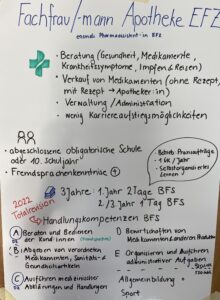 Fachfrau/-mann Apotheke EFZ
ehemals Pharmaassistent-in EFZ
• Beratung (Gesundheit, Medikamente,
Krankheitssymptome, Impfen & Reisen)
• Verkauf von Medikamenten (ohne Rezept,
mit Rezept → Apotheker:in)
• Verwaltung / Administration
• wenig Karriereaufstiegsmöglichkeiten
• abgeschlossene obligatorische Schule
oder 10. Schuljahr
• Fremdsprachenkenntnisse (+)
• 1 ÜK / Jahr
2022
Totalrevision
3 Jahre: 1. Jahr 2 Tage BFS
2./3. Jahr 1 Tag BFS
Handlungskompetenzen BFS
A Beraten und Bedienen
der Kund:innen
B Abgeben von verordneten
Medikamenten, Sanitäts- &
Gesundheitsartikeln
C Ausführen medizinischer
Abklärungen und Handlungen
D Bewirtschaften von
Medikamenten & anderen Produkten
E Organisieren und Ausführen
administrativer Aufgaben
Allgemeinbildung
Sport